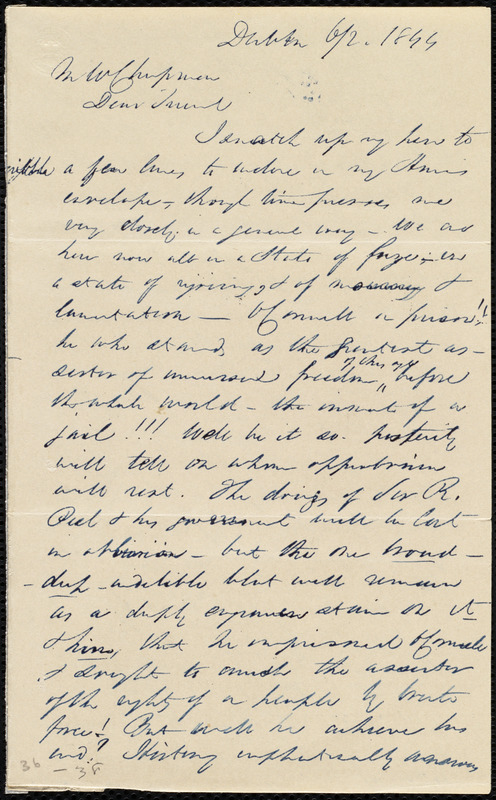 Dublin 6/2. 1844
M W Chapman
Dear Friend
I snatch up my here to
scribble a few lines to enclose in my
envelope, though time presses me
very closely in a general way - We are
here now all in a State of in
a state of rejoicings & of mourning &
lamentation - O'Connell in prison!!
he who stands as the greatest as-
sertor of universal freedom, of this age before
the whole world - the inmate of a
jail!!! Well be it so. Posterity
will tell on whom opprobrium
will rest. The doings of Sir R.
Peel & his government will be lost
in oblivion - but the one broad -
- deep - indelible blot will remain
as a deeply stain on it
& him, that he imprisoned O'Connell
& sought to crush the assertor
of the right of a people by brute
force! But will he achieve his
end? History emphatically answers
36
- 38